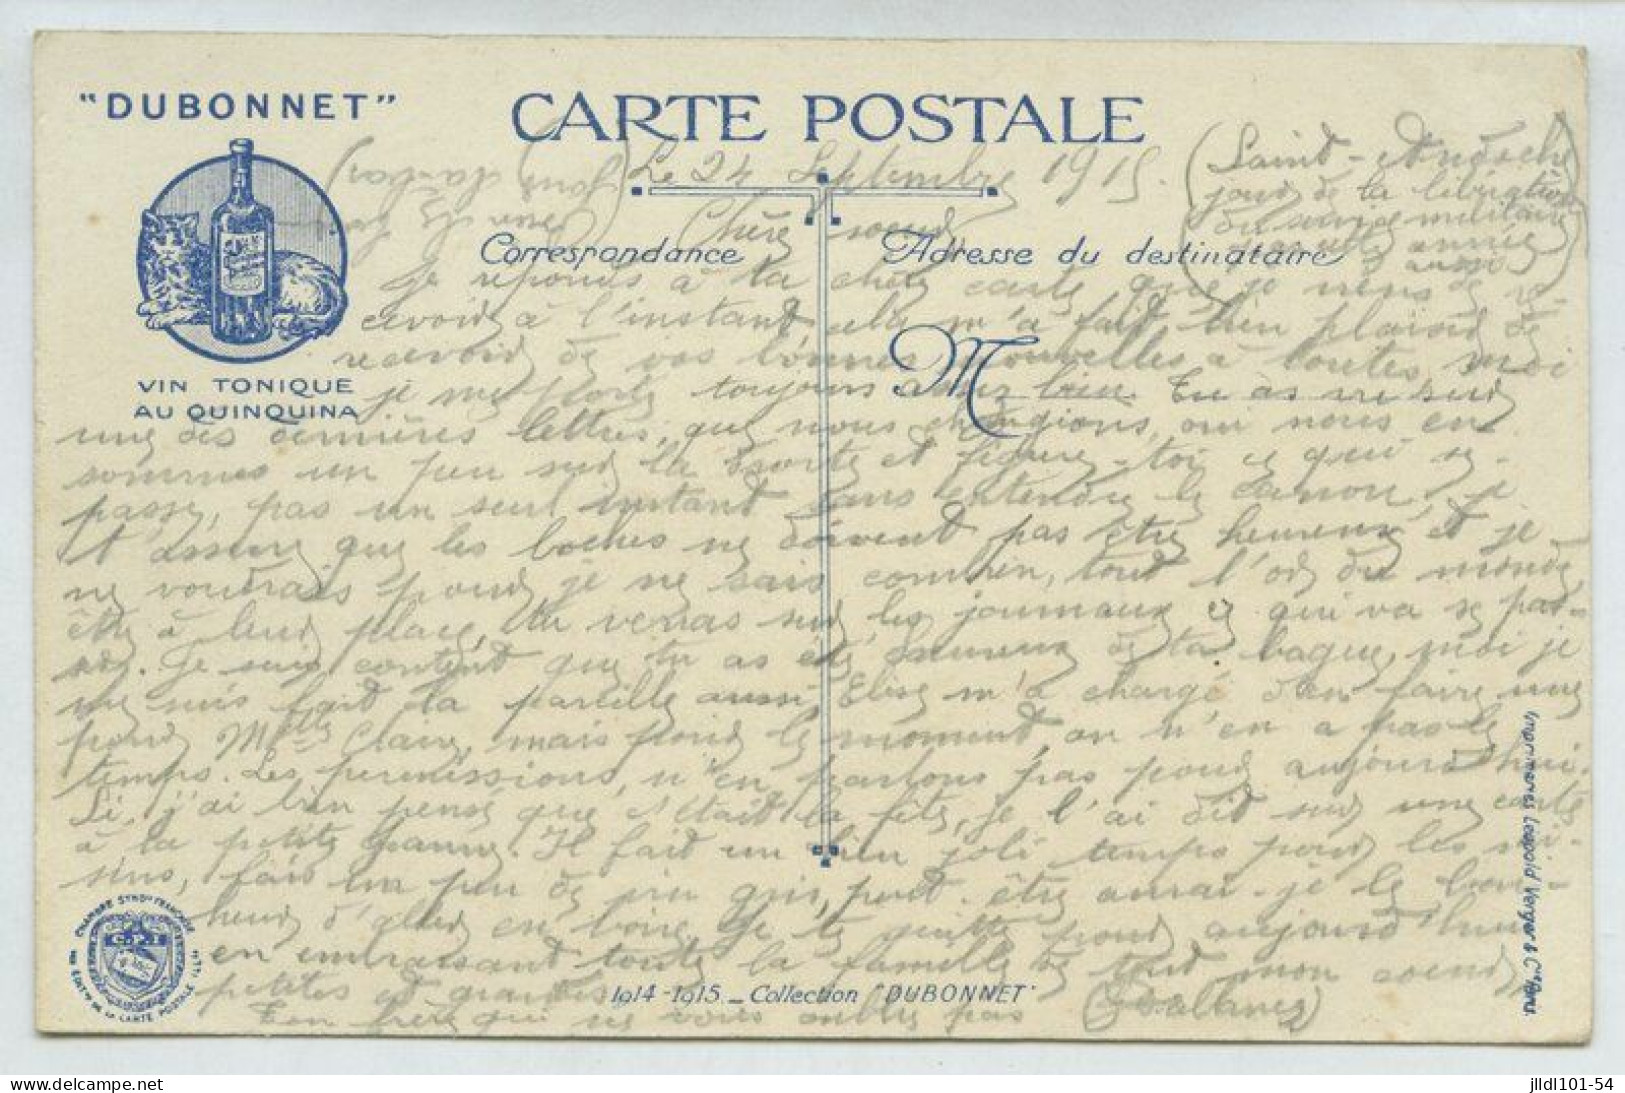 "DUBONNET"
CARTE POSTALE
Le 24 Septembre 1915.
(Saint-Andoche
jour de la libération
du service militaire
année
aussi)
Chère soeur
Correspondance
Adresse du destinataire
Je réponds à ta chère carte que je viens de re-
cevoir à l'instant cela m'a fait bien plaisir de
recevoir de vos bonnes nouvelles à toutes, moi
M
VIN TONIQUE
AU QUINQUINA
je me porte toujours assez bien. Tu as su sur
une des dernières lettres, que nous changions, oui nous en
sommes un peu sur la et figure-toi ce qui se
passe, pas un seul instant sans entendre le canon, je
t'assure que les boches ne doivent pas être heureux et je
ne voudrais pour je ne sais combien, tout l'or du monde,
être à leur place, tu verras sur les journaux ce qui va se pas-
ser. Je suis content que tu as été heureuse de ta bague, moi je
me suis fait la pareille aussi, Elise m'a chargé d'en faire une
pour Mlle Claire, mais pour le moment, on n'en a pas le
temps. Les permissions, n'en parlons pas pour aujourd'hui.
Si, j'ai bien pensé que c'était la fête, je l'ai dit sur une carte
à la petite Jeanne. Il fait un bien joli temps pour les rai-
sins, fais un peu de vin gris, peut-être aurai-je le bon-
heur d'aller en boire. Je te quitte pour aujourd'hui
en embrassant toute la famille de tout mon coeur
petites et grandes
1914-1915 _ Collection "DUBONNET"
Ton frère qui ne vous oublie pas
CHAMBRE SYND.le FRANÇAISE
DES ÉDIT.rs DE LA CARTE POSTALE ILL.tée
Imprimeries Léopold Verger & Cie Paris
jlldl101-54